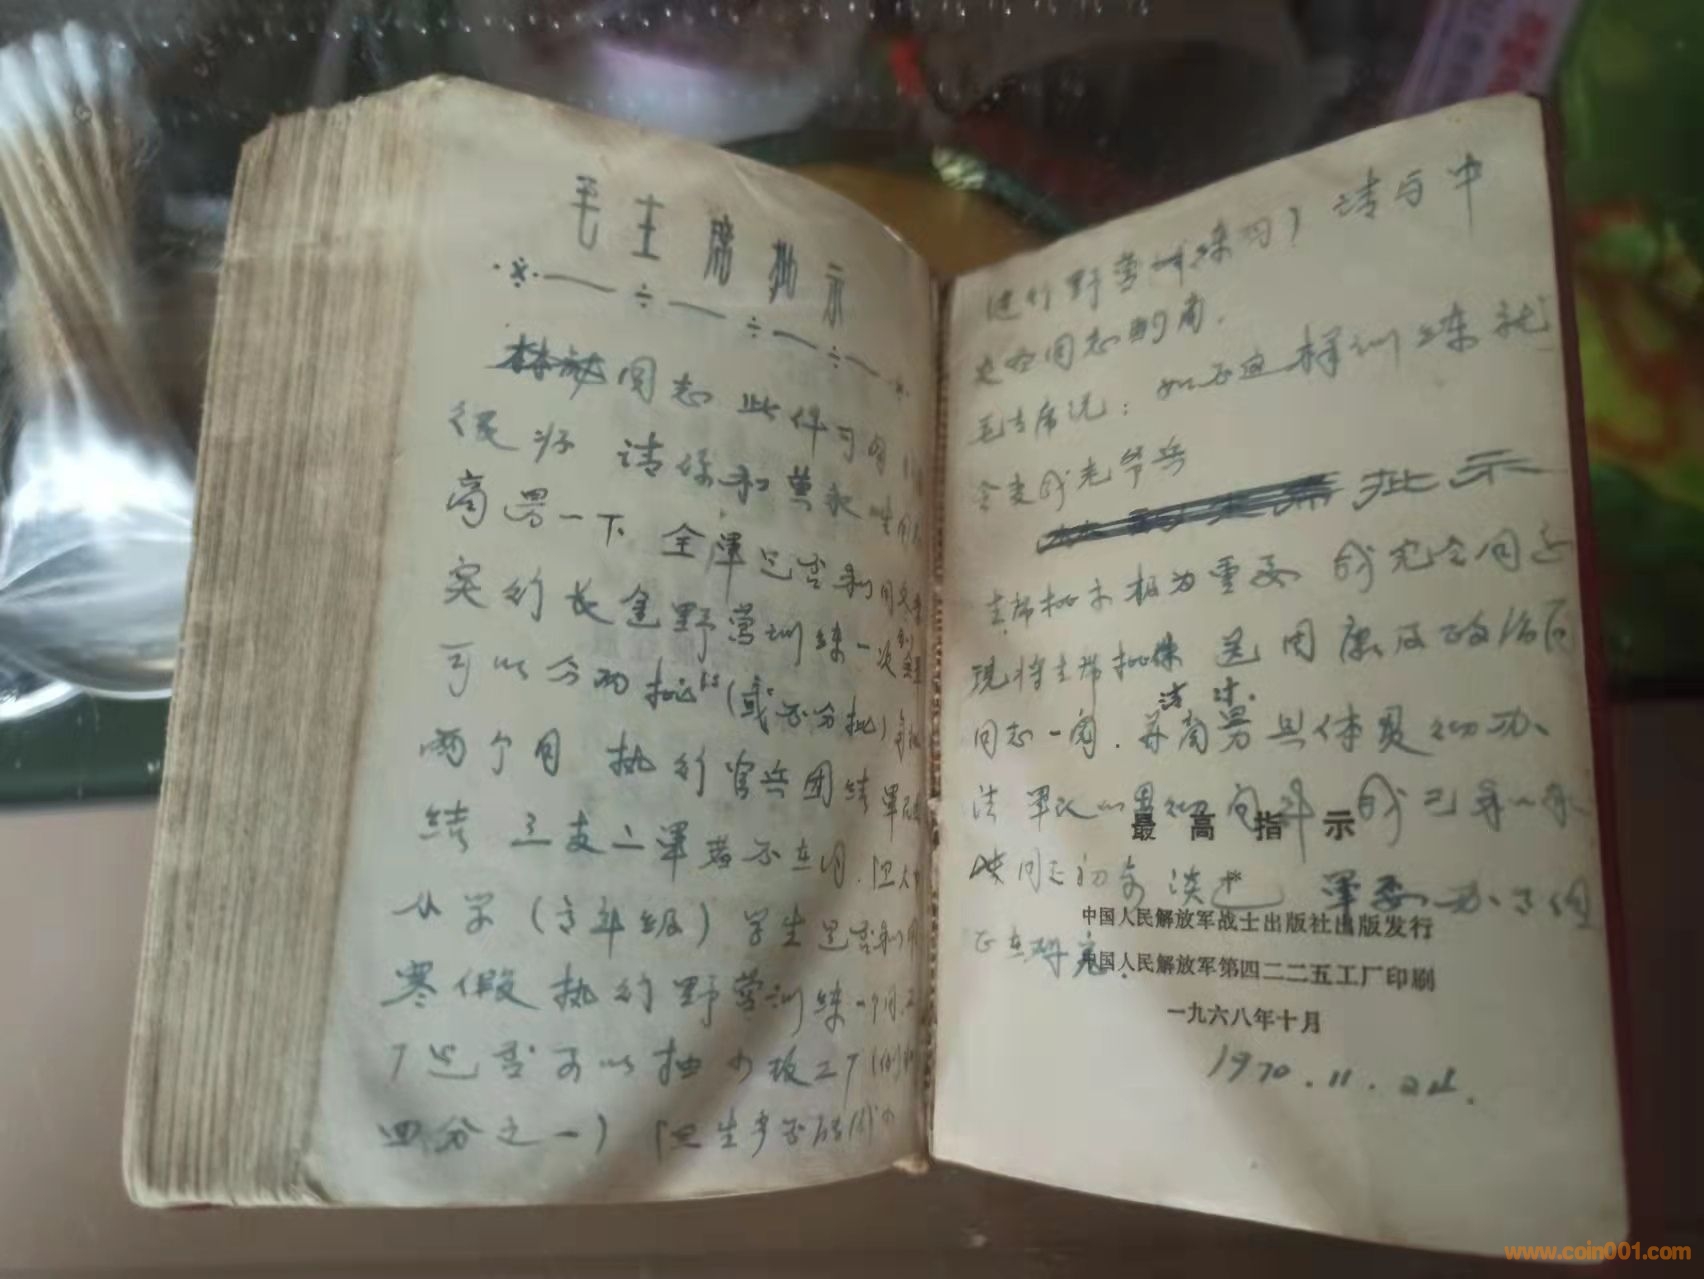 毛主席批示
同志 此件可阅
很好 请你和黄永
商量一下 全军是否利用冬季
实行长途野营训练一次
可以分两批(或不分批)
两个月 执行官兵团结 军
结 三支二军者不在内.但大中
小学(高年级)学生是否利用
寒假执行野营训练一个月.工
厂是否可以抽少数工厂(例如
四分之一)(但生产不能
进行野营训练习)请与中
央各同志酌商.
毛主席说: 如不这样训练就
会变成老爷兵
批示
主席批示极为重要 我完全同意
现将主席批件 送 周 康及政治局
传 达.
同志一阅. 并商量具体贯彻办
法 军队如贯彻 我已和
最高指示
同志初 谈 军委办
中国人民解放军战士出版社出版发行
正在研究.
中国人民解放军第四二二五工厂印刷
一九六八年十月
1970.11.24.
www.coin001.com